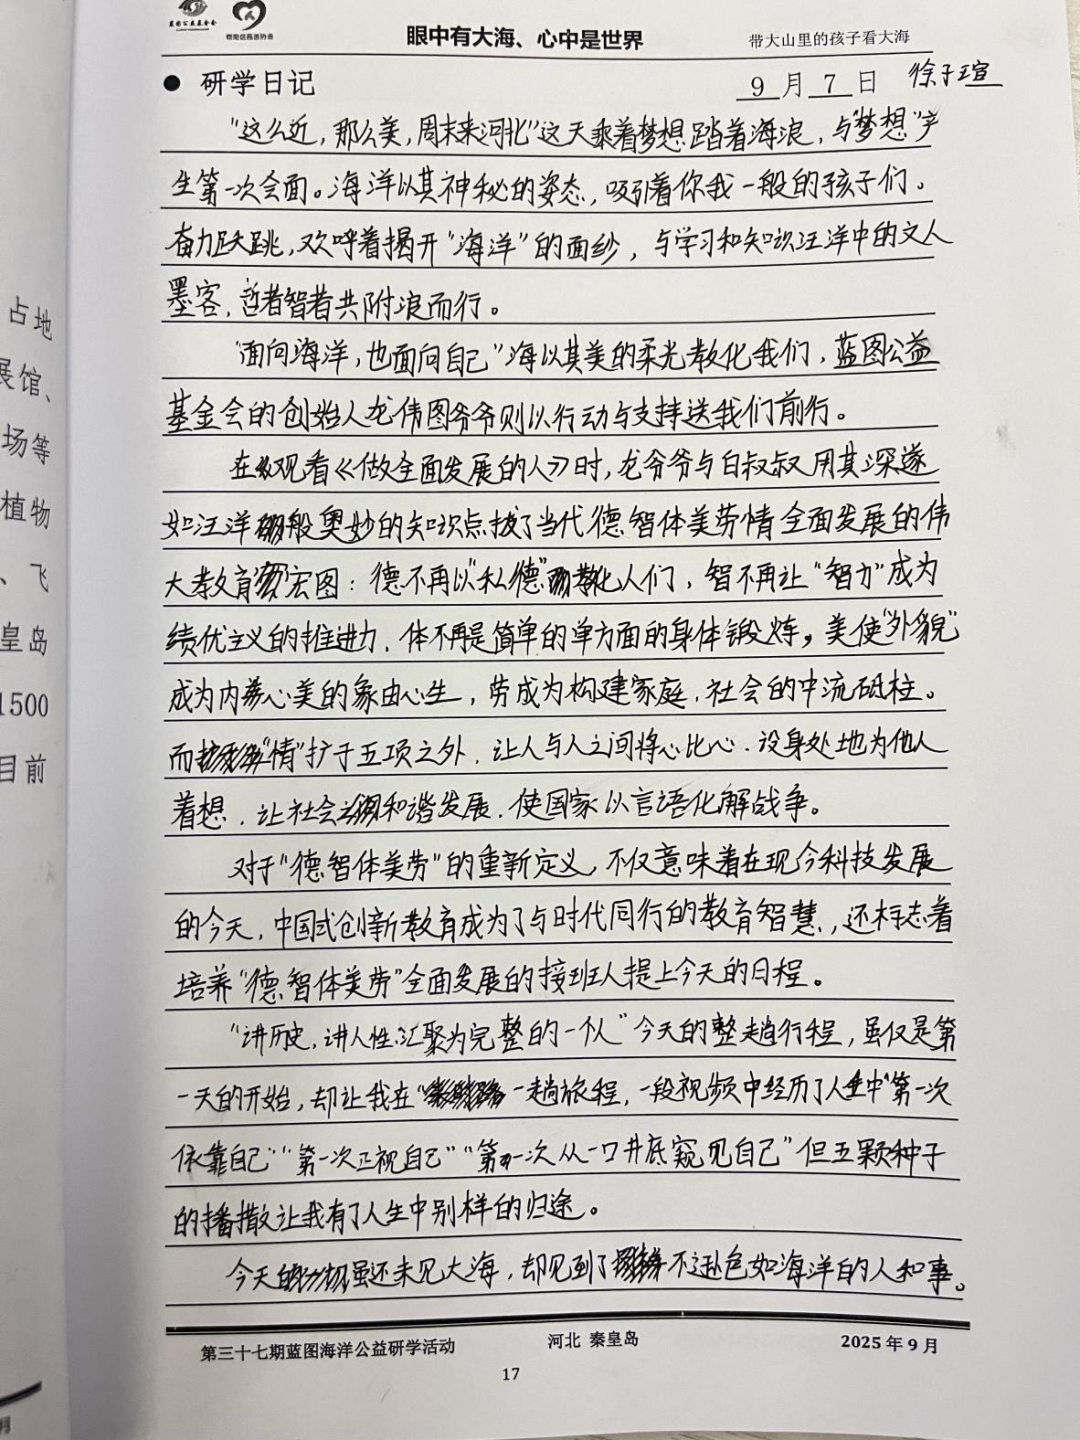 蓝图公益基金会
眼中有大海、心中是世界
带大山里的孩子看大海
● 研学日记
9月7日 徐子瑄
“这么近，那么美，周末来河北”这天乘着梦想踏着海浪，与“梦想”产
生第一次会面。海洋以其神秘的姿态，吸引着你我一般的孩子们。
奋力跃跳，欢呼着揭开“海洋”的面纱，与学习和知识汪洋中的文人
墨客，哲者智者共附浪而行。
“面向海洋，也面向自己”海以其美的柔光教化我们，蓝图公益
基金会的创始人龙伟图爷爷则以行动与支持送我们前行。
在观看《做全面发展的人》时，龙爷爷与白叔叔用其深邃
如汪洋般奥妙的知识点拨了当代德智体美劳情全面发展的伟
大教育宏图：德不再以“私德”教化人们，智不再让“智力”成为
绩优主义的推进力，体不再是简单的单方面的身体锻炼，美使“外貌”
成为内养心美的象由心生，劳成为构建家庭，社会的中流砥柱。
而“情”扩于五项之外，让人与人之间将心比心，设身处地为他人
着想，让社会和谐发展，使国家以言语化解战争。
对于“德智体美劳”的重新定义，不仅意味着在现今科技发展
的今天，中国式创新教育成为了与时代同行的教育智慧，还标志着
培养“德智体美劳”全面发展的接班人提上今天的日程。
“讲历史，讲人性汇聚为完整的一个人”今天的整趟行程，虽仅是第
一天的开始，却让我在一趟旅程，一段视频中经历了人生中“第一次
依靠自己”“第一次正视自己”“第一次从一口井底窥见自己”但五颗种子
的播撒让我有了人生中别样的归途。
今天虽还未见大海，却见到了不逊色如海洋的人和事。
第三十七期蓝图海洋公益研学活动
河北 秦皇岛
2025年9月
17
占地
展馆、
场等
植物
、飞
皇岛
1500
目前
月